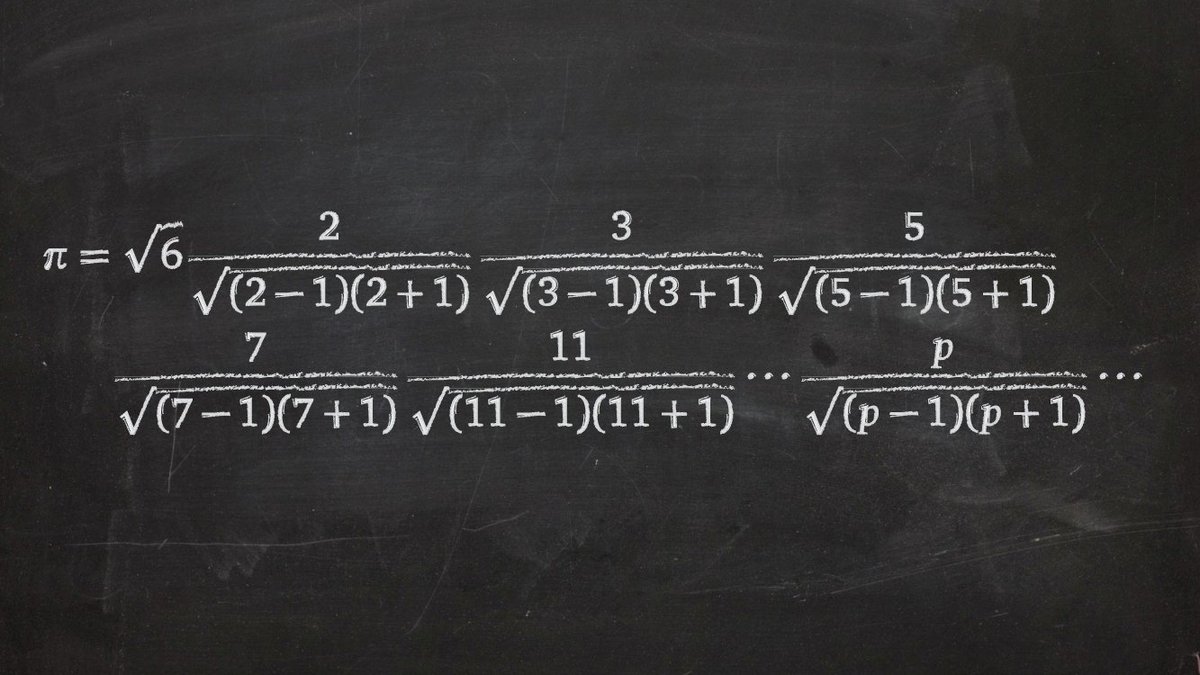 π = √6 2/√((2−1)(2+1)) 3/√((3−1)(3+1)) 5/√((5−1)(5+1))
7/√((7−1)(7+1)) 11/√((11−1)(11+1)) ⋯ p/√((p−1)(p+1)) ⋯